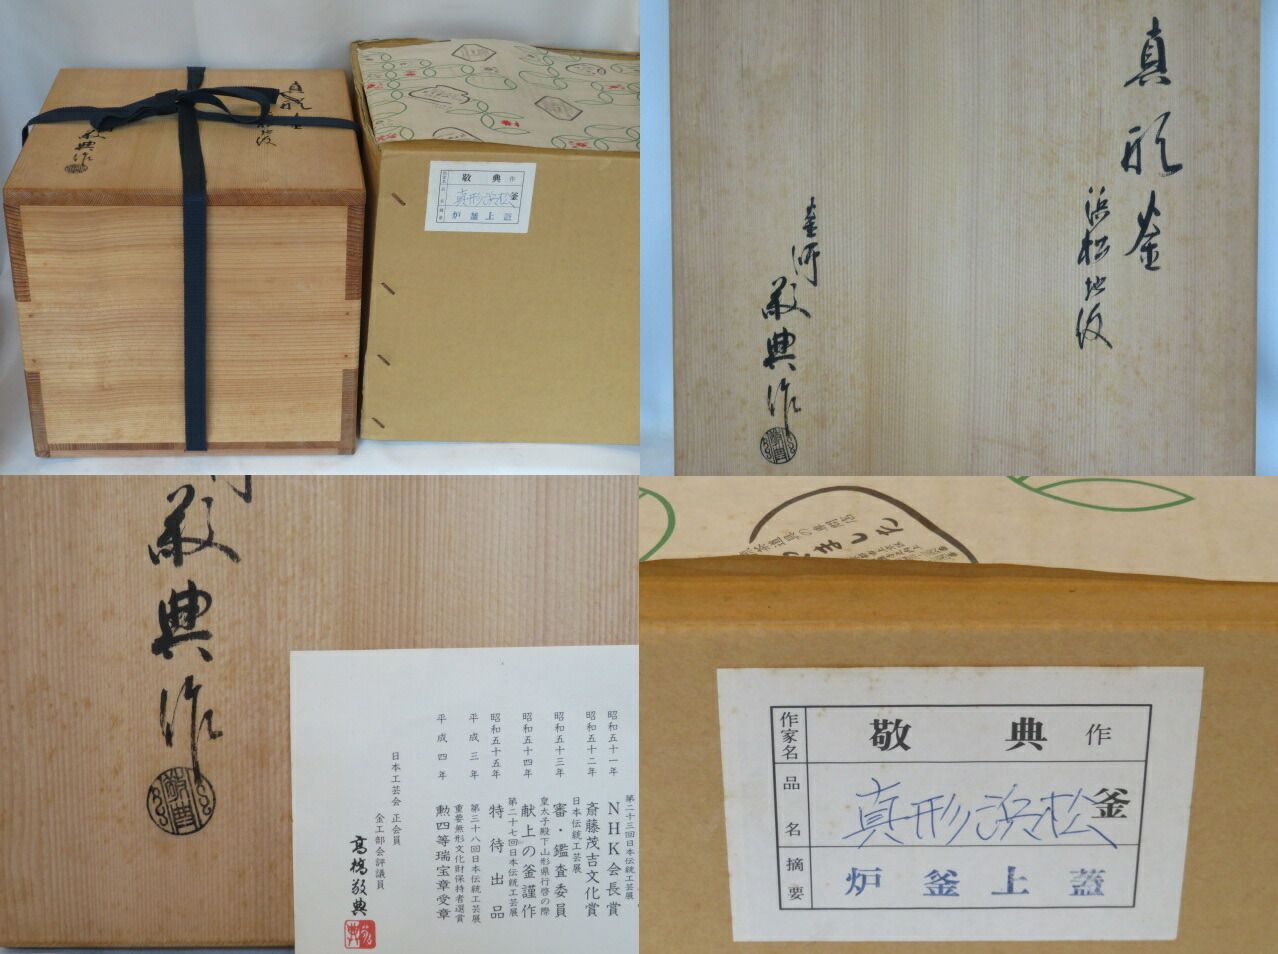 真形釜
浜松地紋
敬典作
作家名
敬典作
真形浜松釜
炉釜上蓋
真形釜
浜松地紋
釜師
敬典作
敬典作
第二十三回日本伝統工芸展
昭和五十一年 NHK会長賞
昭和五十二年 斎藤茂吉文化賞
日本伝統工芸展
昭和五十三年 審・鑑査委員
皇太子殿下山形県行啓の際
昭和五十四年 献上の釜謹作
第二十七回日本伝統工芸展
昭和五十五年 特待出品
第三十八回日本伝統工芸展
平成三年 重要無形文化財保持者選賞
平成四年 勲四等瑞宝章受章
日本工芸会 正会員
金工部会評議員
高橋敬典
作家名 敬典作
品名 真形浜松釜
摘要 炉釜上蓋